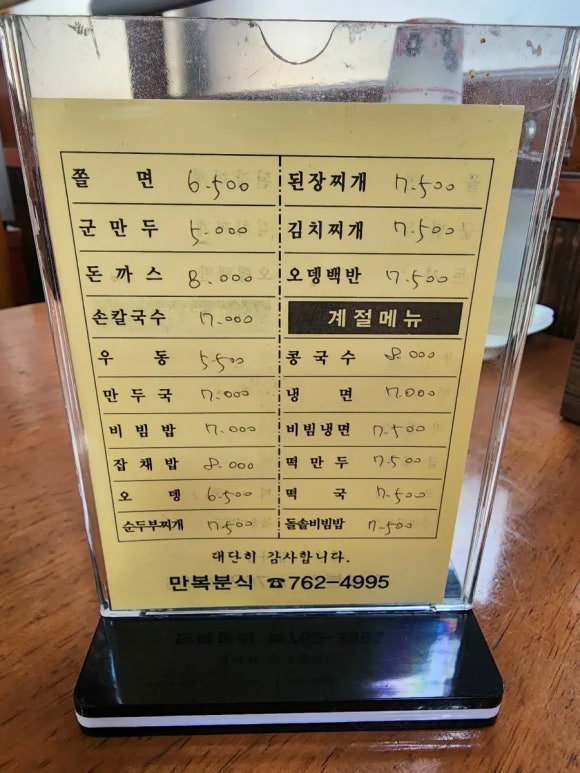 쫄면 6.500
군만두 5.000
돈까스 8.000
손칼국수 7.000
우동 5.500
만두국 7.000
비빔밥 7.000
잡채밥 8.000
오뎅 6.500
순두부찌개 7.500
된장찌개 7.500
김치찌개 7.500
오뎅백반 7.500
계절메뉴
콩국수 8.000
냉면 7.000
비빔냉면 7.500
떡만두 7.500
떡국 7.500
돌솥비빔밥 7.500
대단히 감사합니다.
만복분식 ☎762-4995